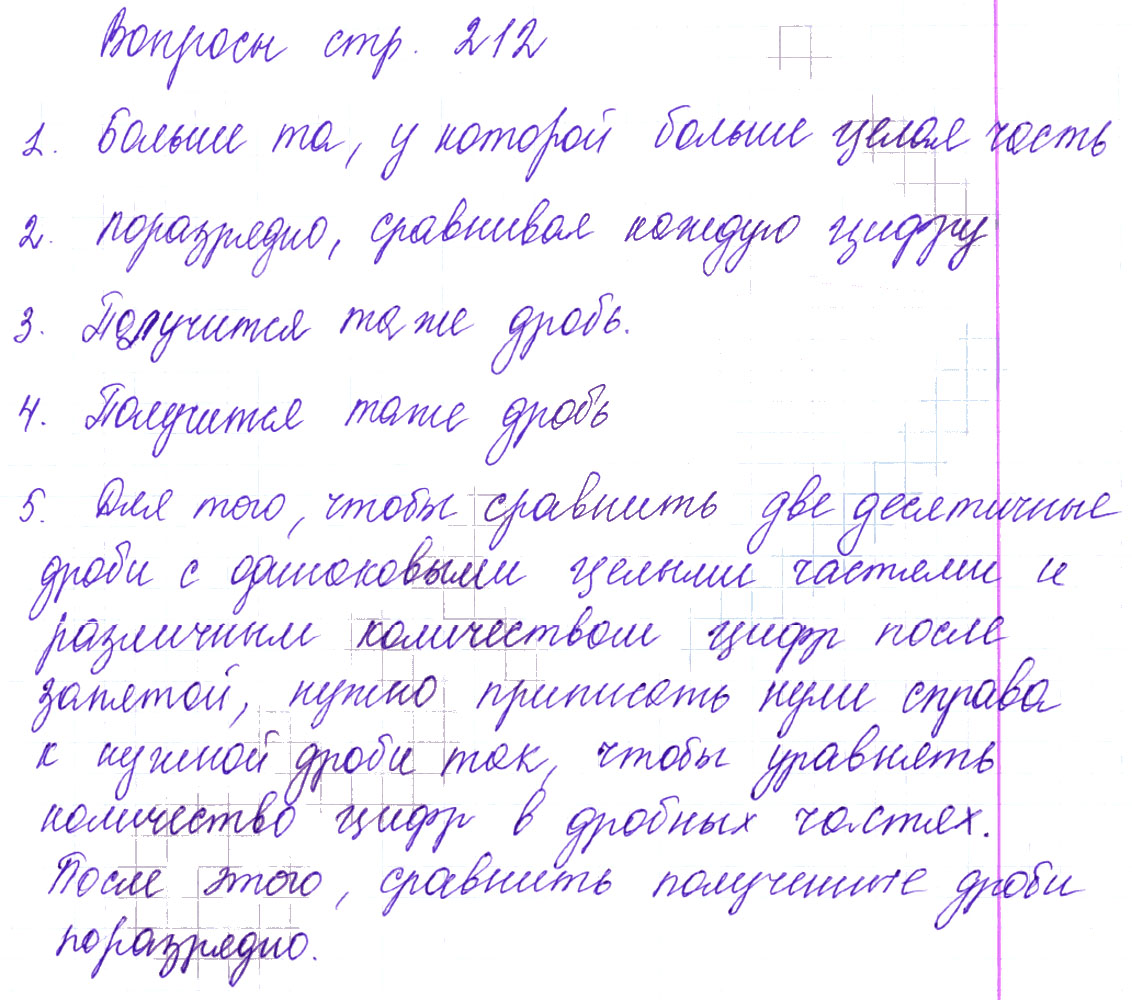 Вопросы стр. 212
1. Больше та, у которой больше целая часть
2. поразрядно, сравнивая каждую цифру
3. Получится таже дробь.
4. Получится таже дробь
5. Для того, чтобы сравнить две десятичные
дроби с одинаковыми целыми частями и
различным количеством цифр после
запятой, нужно приписать нули справа
к нужной дроби так, чтобы уравнять
количество цифр в дробных частях.
После этого, сравнить полученные дроби
поразрядно.